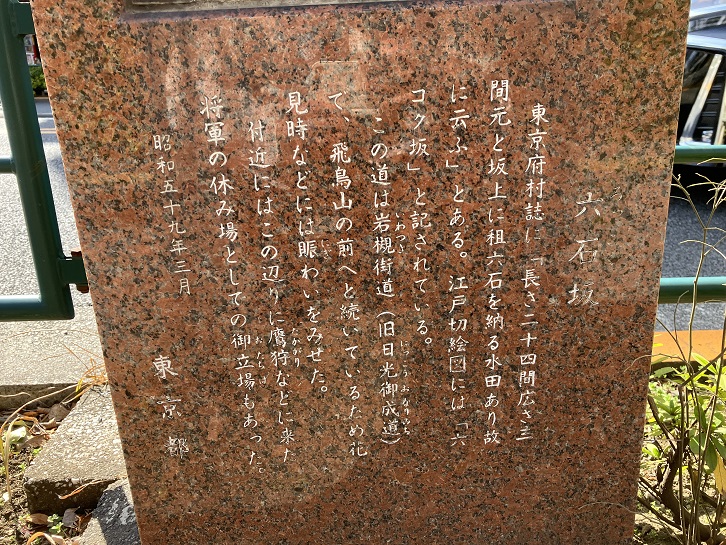 六石坂
東京府村誌に「長さ二十四間広さ三
間元と坂上に租六石を納る水田あり故
に云ふ」とある。江戸切絵図には「六
コク坂」と記されている。
この道は岩槻街道(旧日光御成道)
いわつき
にっこうおなりみち
て、飛鳥山の前へと続いているため花
見時などには賑わいをみせた。
にぎ
付近にはこの辺りに鷹狩などに来た
たかがり
将軍の休み場としての御立場もあった。
おたちば
昭和五十九年三月
東京都